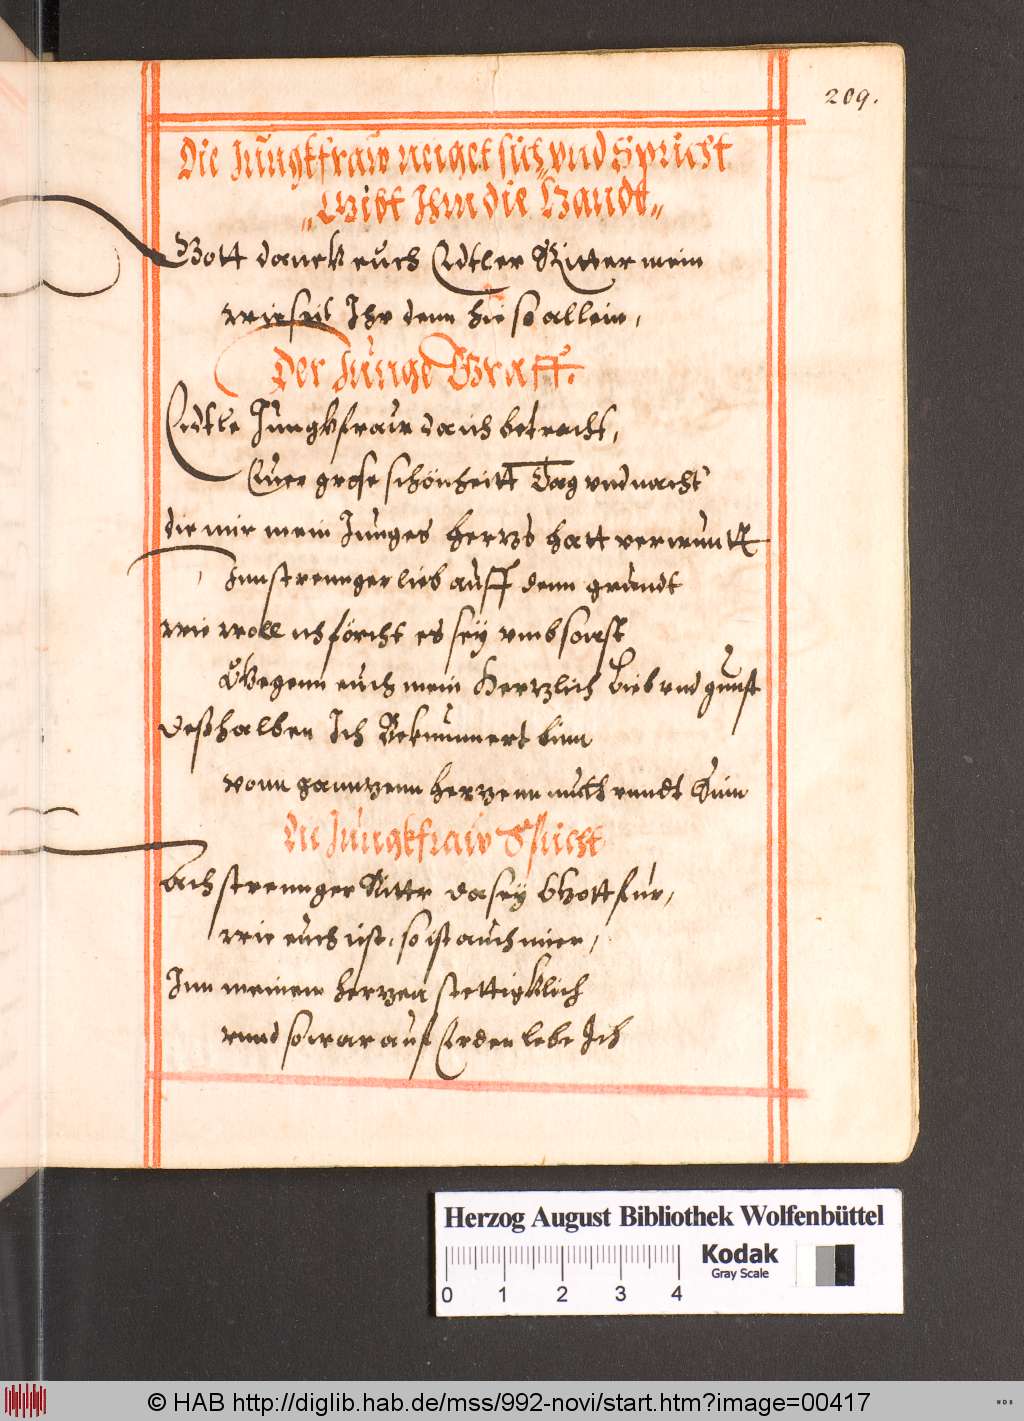 209.
Die Jungkfraw neiget sich vnd Spricht
„Gibt Ihm die Handt„
Gott danck euch Edtler Ritter mein
wie seit Ihr denn hie so allein,
Der Junge Graff.
Edtle Jungkfraw da ich betracht,
Euer grose schönheitt Tag vnd nacht
die mir mein Junges hertzs hatt verwuntt
Inn strennger lieb auff denn grundt
wie woll ich förcht es sey vmb sonst
Gegenn euch mein Hertzlich Lieb vnd gunst
Deßhalben Ich Bekummert binn
vonn ganntzenn hertzenn mutt vnndt Sinn
Die Jungkfraw Spricht
Ach strennger Ritter da sey Gott fur,
wie euch ist, so ist auch mier,
Inn meinem hertzen stettigklich
vnnd so war auf Erden lebe Ich
Herzog August Bibliothek Wolfenbüttel
Kodak
Gray Scale
0 1 2 3 4
© HAB http://diglib.hab.de/mss/992-novi/start.htm?image=00417